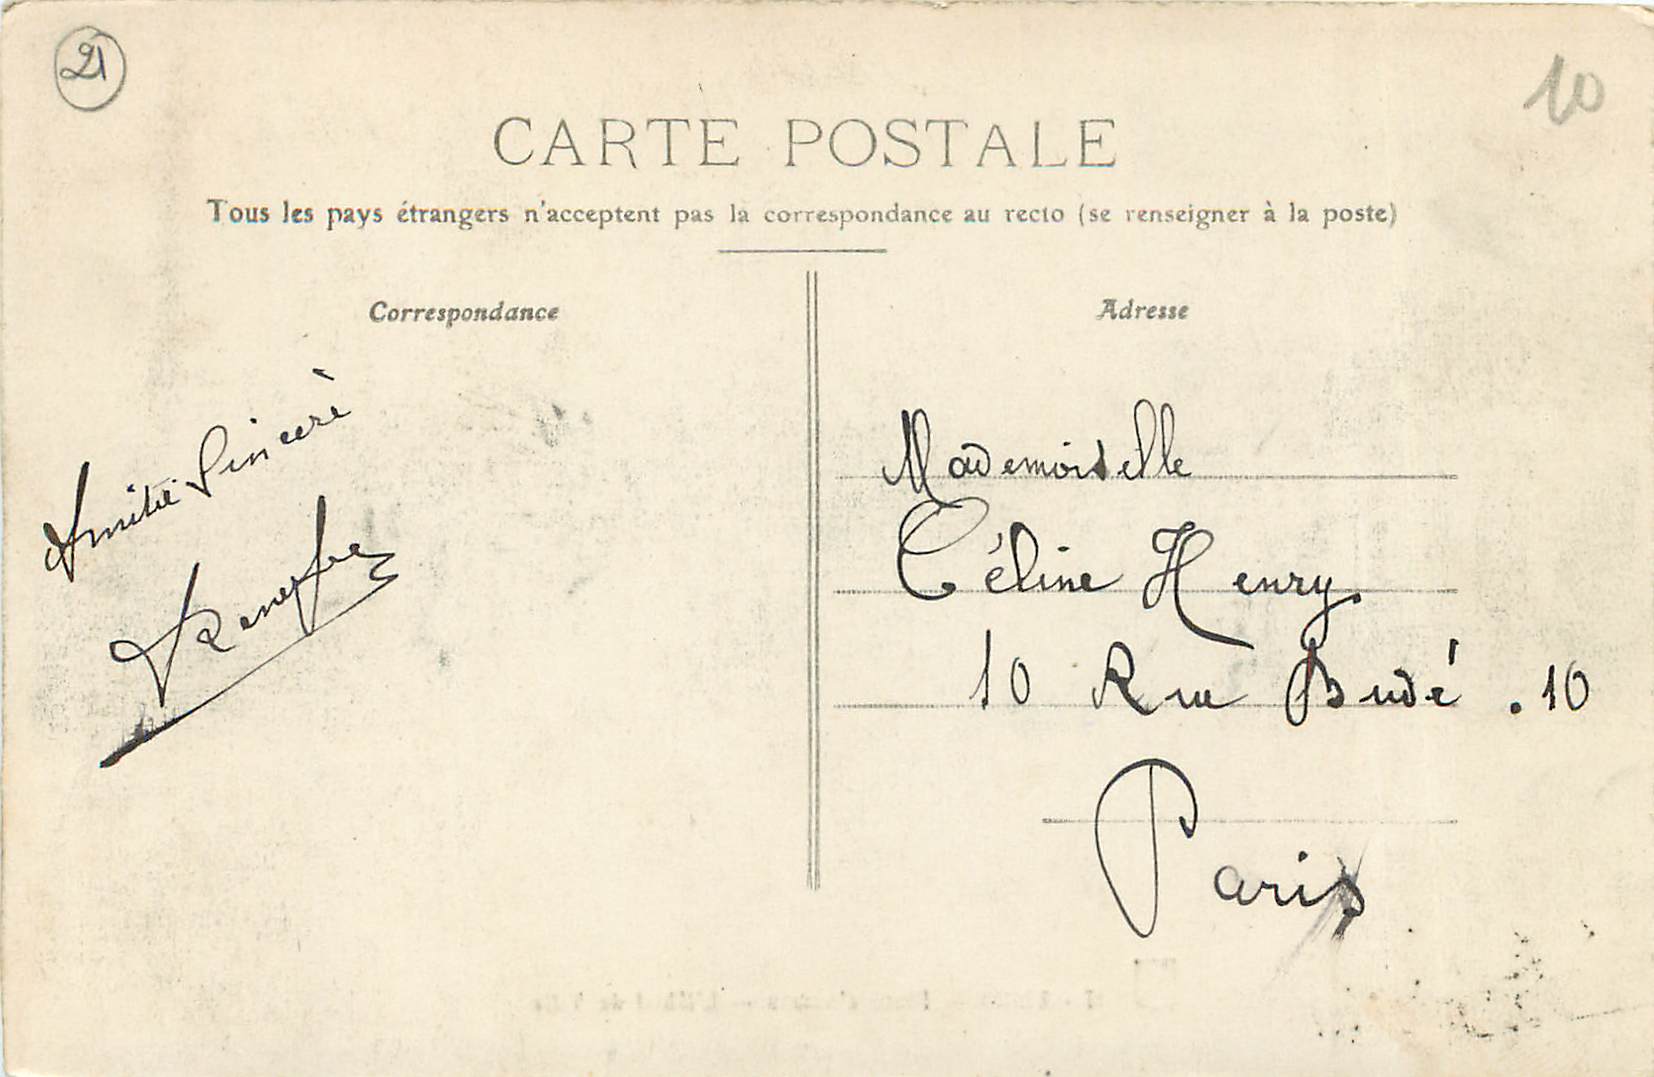 21
10
CARTE POSTALE
Tous les pays étrangers n'acceptent pas la correspondance au recto (se renseigner à la poste)
Correspondance
Amitié Sincère
Adresse
Mademoiselle
Céline Henry
10 Rue Budé . 10
Paris